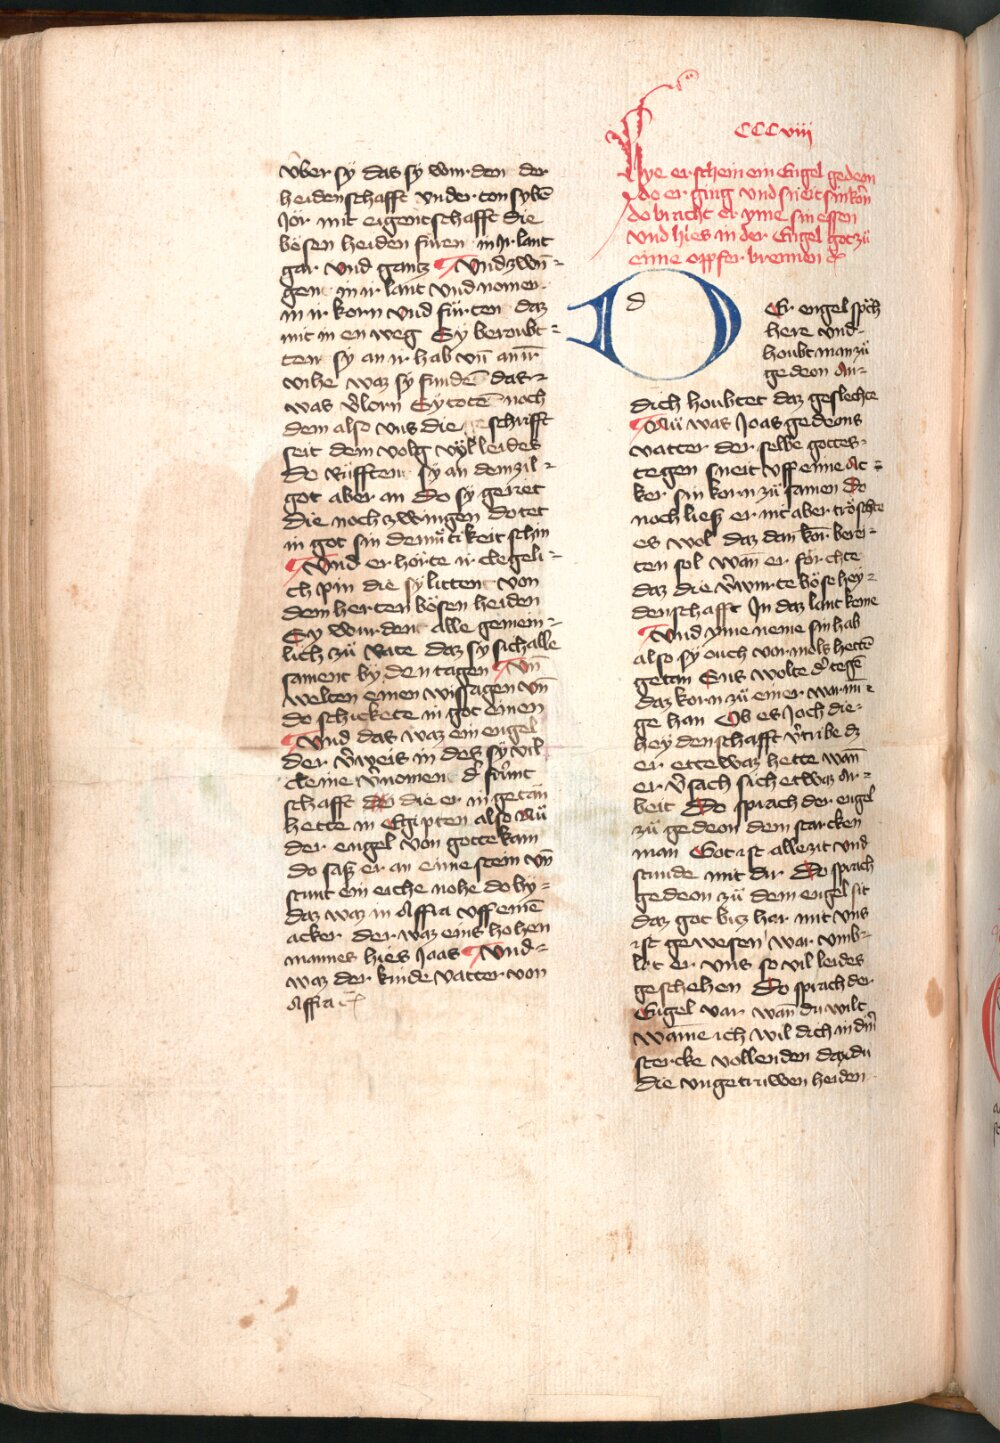 vber sy das sy wurden der
heidenschafft vnder ton syben
Jor mit eigentschafft die
bösen heiden furen in Jr lant
gar vnd gantz Vnd zwun-
gen in ir lant vnd nomen
in ir korn vnd fürten daz
mit in en weg Sy beroubt-
ten sy an ir hab vn̄ an ir
vihe waz sy funden das
was v̓lorn Sy toten noch
dem also vns die schrifft
seit dem volg vyl leides
Do rüfften sy an dem zil
got aber an do sy geriet
die noch zwingen do tet
in got sin demütikeit schin
Vnd er horte ir clegeli-
ch pin die sy litten von
dem herten bösen heiden
Sy wurden alle gemein-
lich zü rate daz sy sich alle
sament by den tagen Vn̄
welten einen wissagen vn̄
do schickete in got einen
Vnd das waz ein engel
der v̓weis in des sy vil
cleine v̓nomen d̓ frünt
schafft die er in getan
hette in Egipten also Nü
der engel von gotte kam
do saß er an eime stein vn̄
stunt ein eiche nohe do by
daz waz in Affia vff eime
acker der waz eins hohen
mannes hies Joas Vnd
waz der kinde vatter von
Affia
CCCviii
Wye erschein ein Engel gedeon
do er ging vnd sneit sin korn
do bracht er yme sin essen
vnd hies in der Engel got zü
eime oppfer brennen
d
DEr engel sp̄ch
here vnd
houbt man zü
gedeon An-
dich houbtet daz geslechte
Nü was Joas gedeons
vatter der selbe gottes
tegen sneit vff eime Ac-
ker sin korn zü samen Do
noch ließ er nit aber tröschte
es wol daz dan korn berei-
ten sol wan̄ er forchte
daz die v̓wurte böse hey-
denschafft In daz lant keme
Vnd yme neme sin hab
also sy ouch vormols hetten
getan Sus wolte d̓ tegen
daz korn zü einer warnu-
ge han Ob es Joch die
heydenschafft v̓tribe dz
er ettewaz hette wan̄
er v̓sach sich etwaz Ar-
beit Do sprach der engel
zü gedeon dem starcken
man Got ist alle zit vnd
stunde mit dir Do sprach
gedeon zü dem engel sit
daz got bicz her mit vns
ist gewesen war vmb
lat er vns so vil leides
geschehen Do sprach der
Engel var wan̄ du wilt
wanne ich wil dich in din̄
stercke vollenden daz du
die vngetruwen heiden